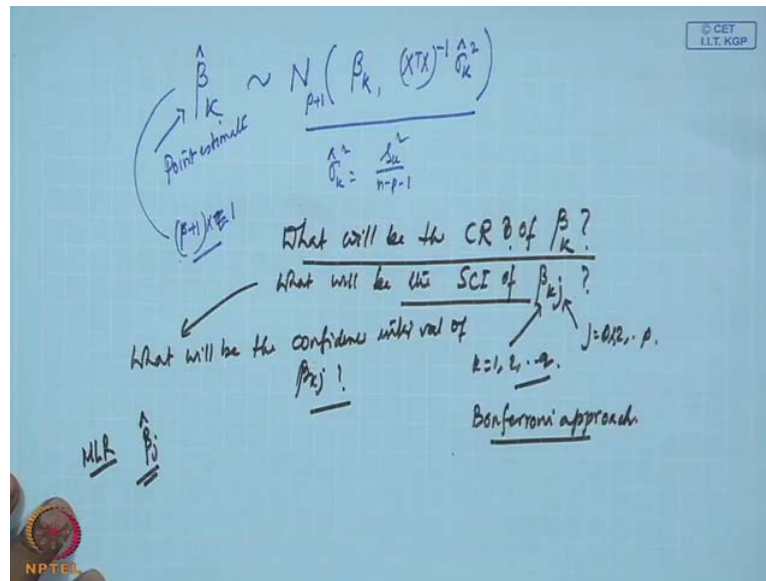 © CET
I.I.T. KGP
β̂_k ~ N_{p+1}(β_k, (XᵀX)⁻¹ σ̂_k²)
Point estimate
σ̂_k² = s_k² / n-p-1
(p+1)×1
What will be the CR of β_k ?
What will be the SCI of β_kj ?
What will be the confidence interval of
β_kj ?
k=1, 2, ..q.
j=0,1,2,.. p.
Bonferroni approach
MLR β̂_j
NPTEL